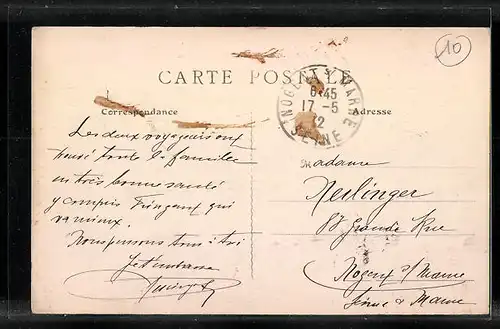 10
CARTE POSTALE
NOGENT S/ MARNE
6 45
17 - 5
22
SEINE
Correspondance
Adresse
Les deux voyageurs ont
trouvé toute la famille
en très bonne santé
y compris qui
va mieux.
Nous pensons tous à toi
Je t'embrasse
Madame
Neslinger
88 Grande Rue
Nogent s/ Marne
Seine & Marne